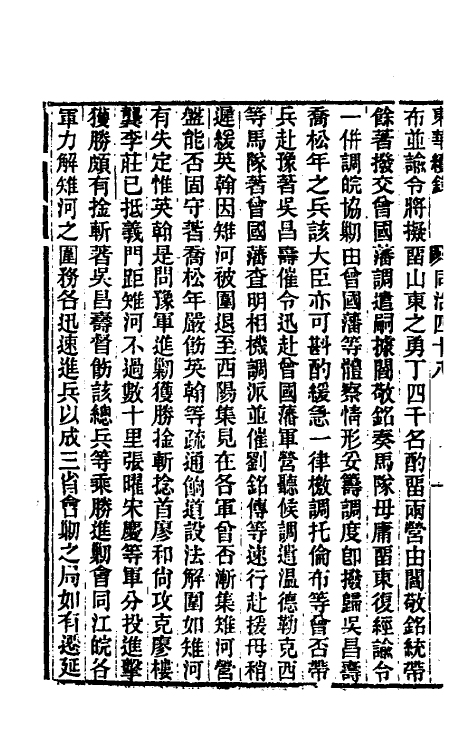 東華續錄 同治四十八 一
布並諭令將擬畱山東之勇丁四千名酌畱兩營由閻敬銘統帶
餘著撥交曾國藩調遣嗣據閻敬銘奏馬隊毋庸畱東復經諭令
一併調皖協勦由曾國藩等體察情形妥籌調度卽撥歸吳昌壽
喬松年之兵該大臣亦可斟酌緩急一律檄調托倫布等曾否帶
兵赴豫著吳昌壽催令迅赴曾國藩軍營聽候調遣溫德勒克西
等馬隊著曾國藩查明相機調派並催劉銘傳等速行赴援毋稍
遲緩英翰因雉河被圍退至西陽集見在各軍曾否漸集雉河營
盤能否固守著喬松年嚴飭英翰等疏通餉道設法解圍如雉河
有失定惟英翰是問豫軍進勦獲勝擒斬捻首廖和尙攻克廖樓
龔李莊已抵義門距雉河不過數十里張曜宋慶等軍分投進擊
獲勝頗有擒斬著吳昌壽督飭該總兵等乘勝進勦會同江皖各
軍力解雉河之圍務各迅速進兵以成三省會勦之局如有遷延